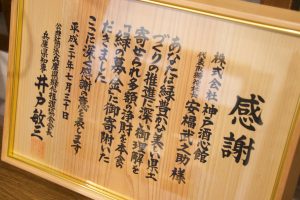 感謝
株式会社 神戸酒心館
代表取締役 安福武之助 様
あなたは緑豊かな美しい県土
づくりの推進に深い御理解を
寄せられ多額の浄財を本会の
「緑の募金」に御寄附いた
だきました
ここに深く感謝の意を表します
平成三十年七月三十日
公益社団法人兵庫県緑化推進協会会長
兵庫県知事 井戸敏三